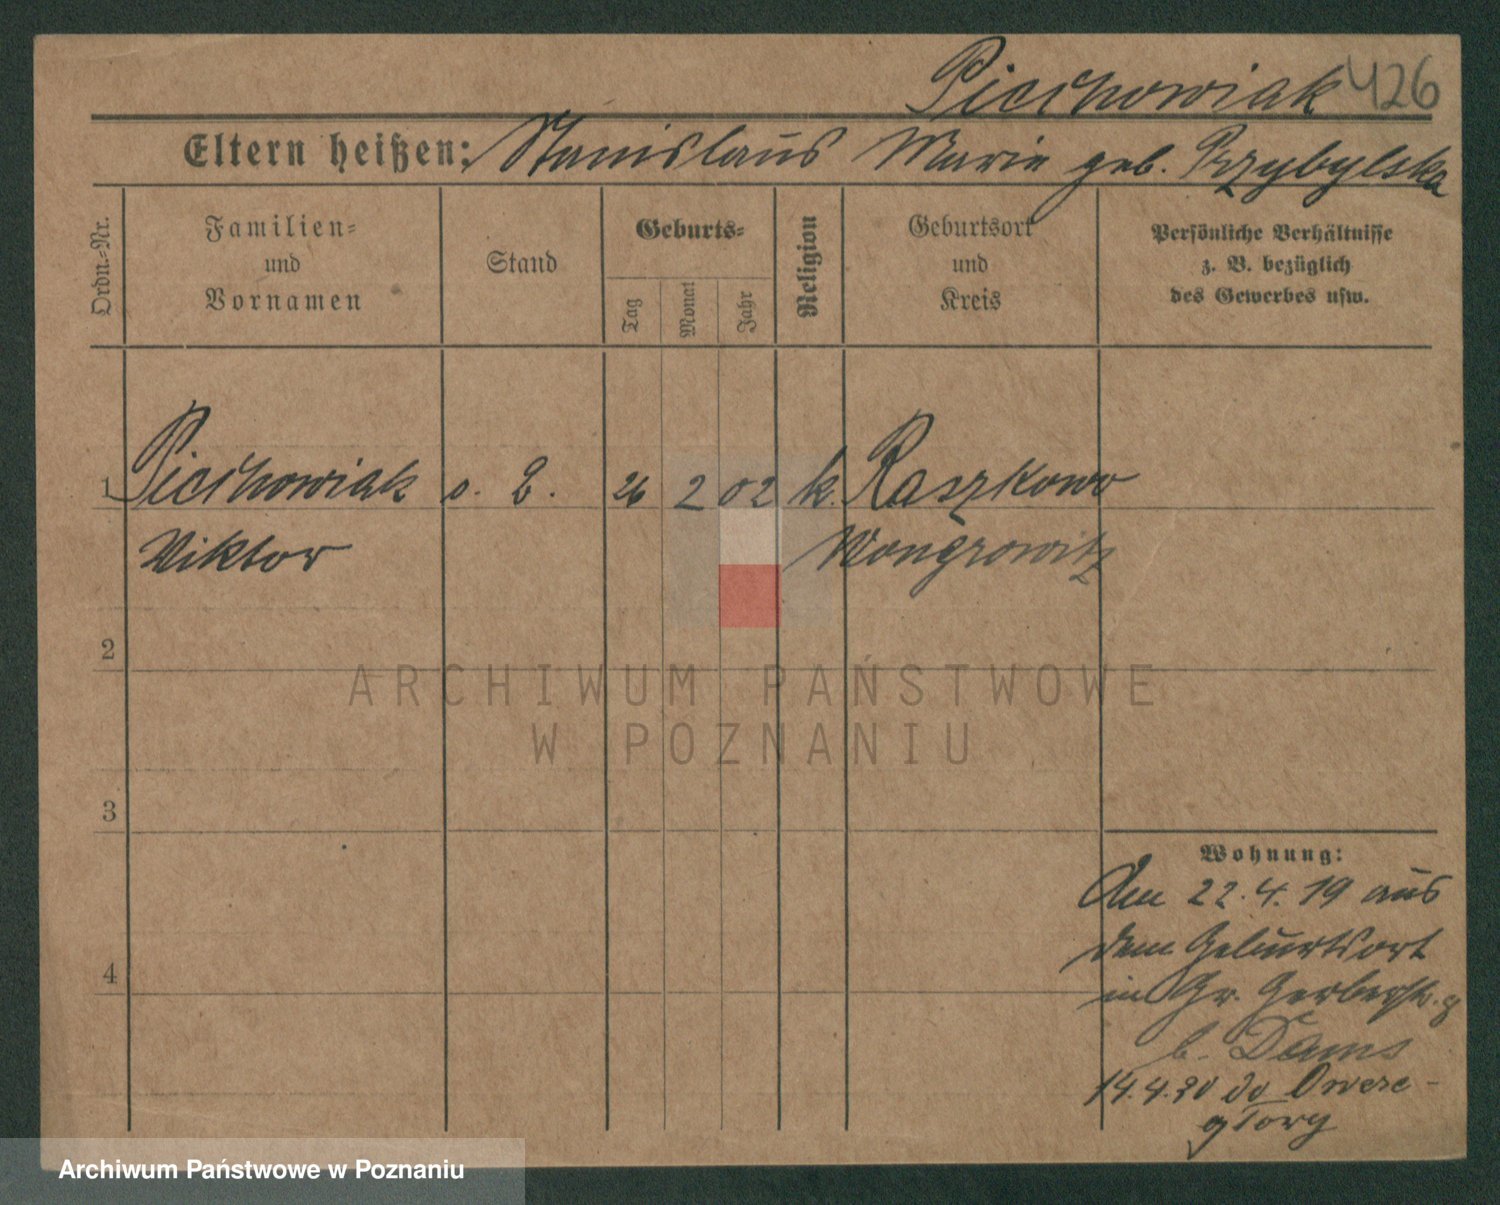 Piechowiak 426
Eltern heißen: Stanislaus Marie geb. Przybylska
Ordn.-Nr.
Familien-
und
Vornamen
Stand
Geburts-
Tag
Monat
Jahr
Religion
Geburtsort
und
Kreis
Persönliche Verhältnisse
z. B. bezüglich
des Gewerbes usw.
1 Piechowiak s. L. 26 2 02 k. Raszkowo
Viktor Wongrowitz
2
3
4
Wohnung:
Am 22.4.19 aus
dem Geburtsort
in Gr. Gerberstr. 9
b. Dams
14.4.20 do
ARCHIWUM PAŃSTWOWE
W POZNANIU
Archiwum Państwowe w Poznaniu